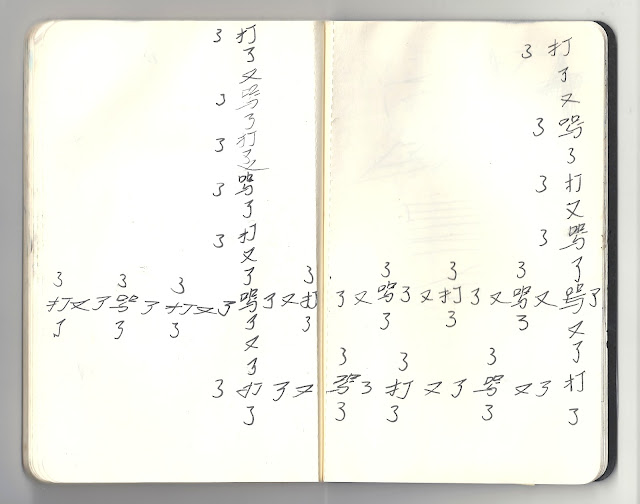 3 打
了
又
3 骂
了
3 打
了
3 骂
了
3 打
又
了
3 打
了
又
3 骂
3
3 打
又
3 骂
了
3 3 3 3 3 3 3
打又了骂了打又了骂了又打了又骂了又打了又骂又骂了
了 3 3 了 3 3 3 3
又 又
了 3 3 3 了
3 打了又骂3打又了骂又了打
3 3 3 3 3